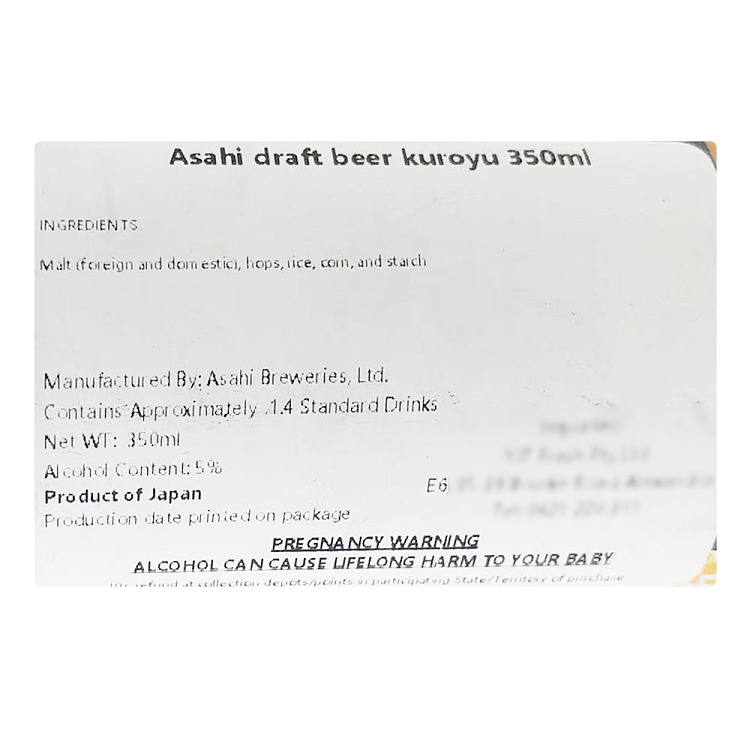 Asahi draft beer kuroyu 350ml
INGREDIENTS
Malt (foreign and domestic), hops, rice, corn, and starch
Manufactured By: Asahi Breweries, Ltd.
Contains Approximately 1.4 Standard Drinks
Net WT: 350ml
Alcohol Content: 5%
Product of Japan
E6
Production date printed on package
PREGNANCY WARNING
ALCOHOL CAN CAUSE LIFELONG HARM TO YOUR BABY
10c refund at collection depots/points in participating State/Territory of purchase